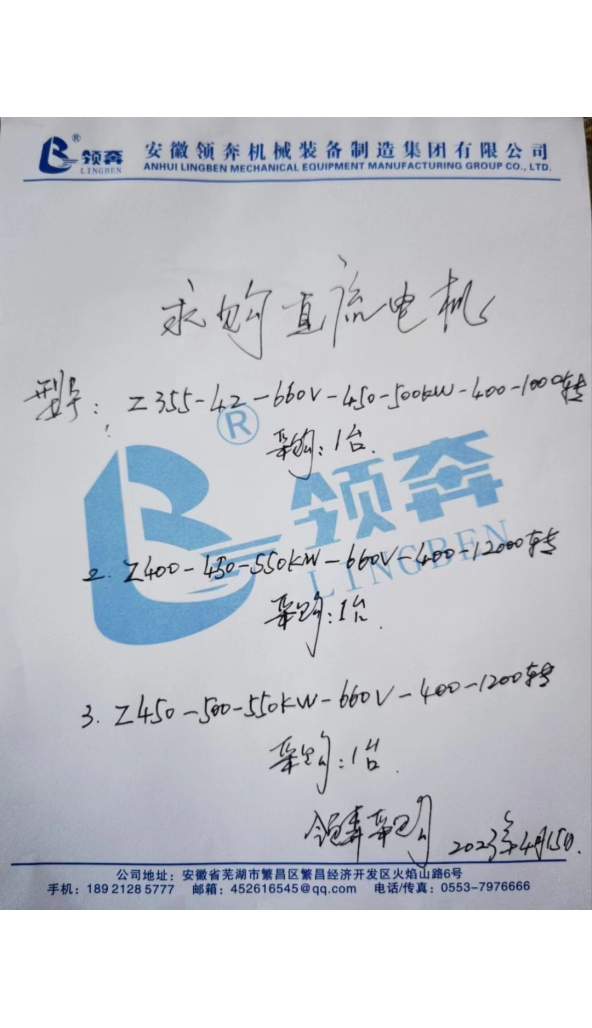 ® 领奔
LINGBEN
安徽领奔机械装备制造集团有限公司
ANHUI LINGBEN MECHANICAL EQUIPMENT MANUFACTURING GROUP CO., LTD.
求购直流电机
型号: Z355-42-660V-450-500kW-400-1000转
采购:1台.
® 领奔
LINGBEN
2. Z400-450-550KW-660V-400-12000转
采购:1台.
3. Z450-500-550KW-660V-400-1200转
采购:1台.
领奔采购
2023年4月15日.
公司地址:安徽省芜湖市繁昌区繁昌经济开发区火焰山路6号
手机:189 2128 5777 邮箱:452616545@qq.com 电话/传真:0553-7976666